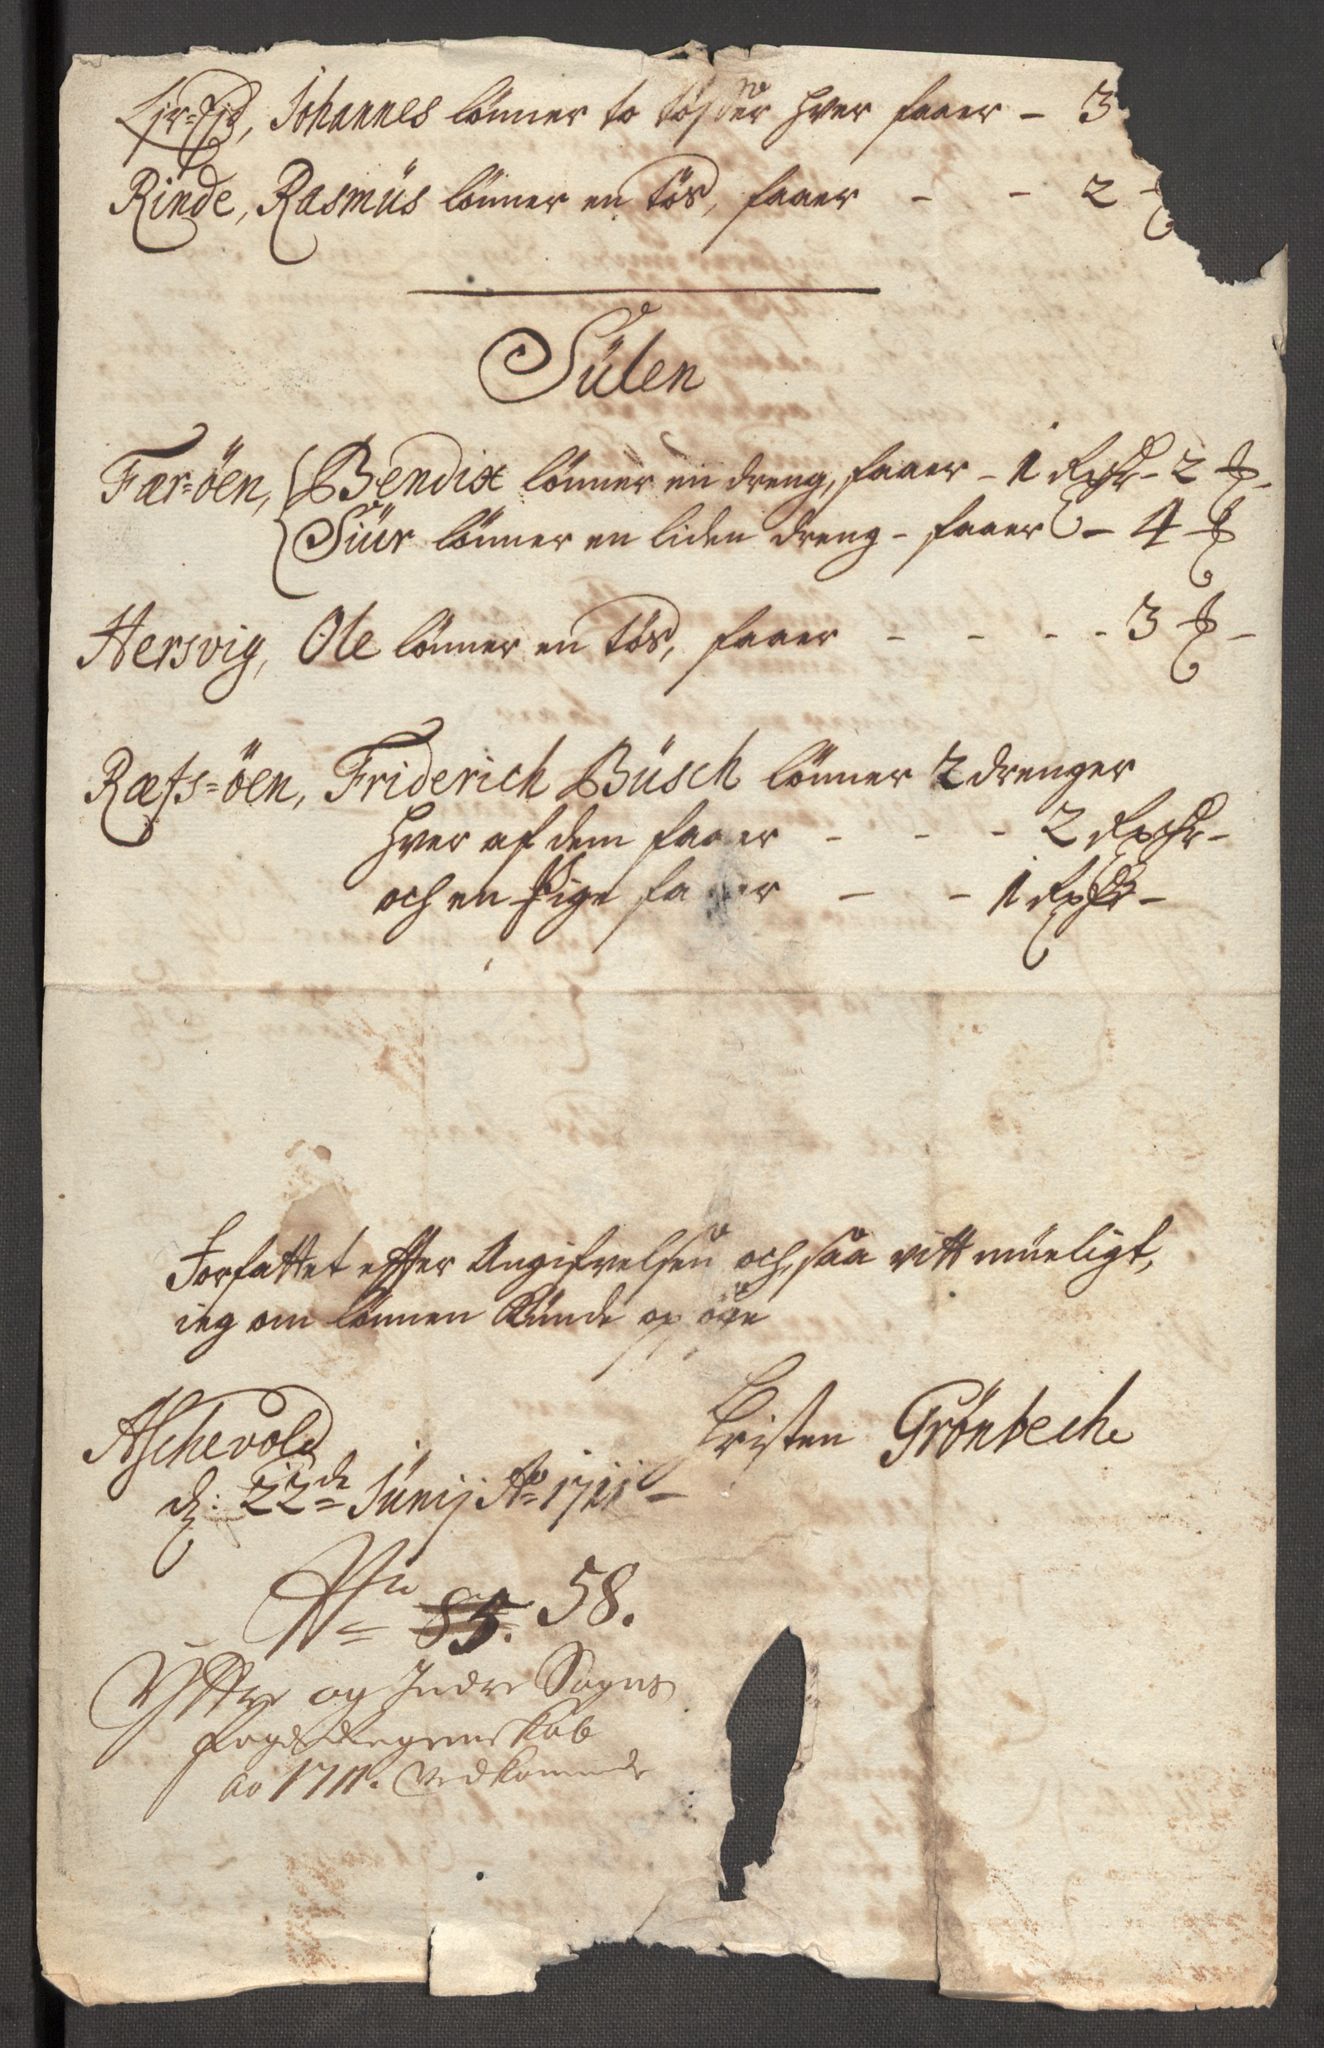 Johannes lönner to tösser hver faaer - 3
Rinde, Rasmüs lönner en tös, faaer - - 2 ℔
Sülen
Fær=öen, Bendix lönner en dreng, faaer - 1 Rixdr - 2 ℔ -
Siür lönner en liden dreng - faaer - 4 ℔
Hersvig, Ole lönner en tös, faaer - - - - 3 ℔ -
Ræfs=öen, Friderich Büsch lönner 2 drenger
hver af dem faaer - - - 2 Rixdr -
och en Pige faaer - - 1 Rixdr -
Forfattet effter Angifvelsen och saa vitt müeligt,
ieg om lönnen künde
Aschevold
d: 22de Junij Ao 1711 -
Christen Grönbech
No 85. 58.
Yttre og Indre Sogns
fogd. Regenskab
ao 1711. Vedkommende